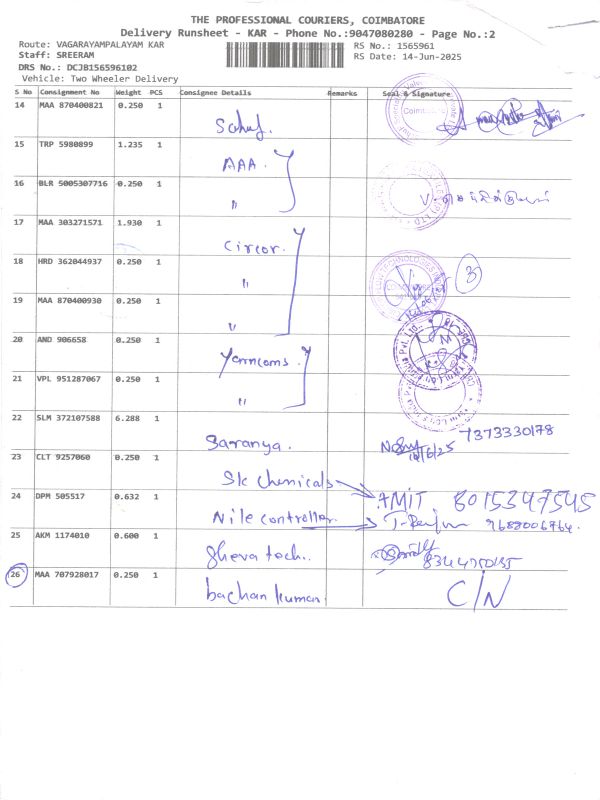 THE PROFESSIONAL COURIERS, COIMBATORE
Delivery Runsheet - KAR - Phone No.:9047080280 - Page No.:2
Route: VAGARAYAMPALAYAM KAR
RS No.: 1565961
Staff: SREERAM
RS Date: 14-Jun-2025
DRS No.: DCJB156596102
Vehicle: Two Wheeler Delivery
S No Consignment No Weight PCS Consignee Details Remarks Seal & Signature
14 MAA 870400821 0.250 1
15 TRP 5980899 1.235 1 AAA
16 BLR 5005307716 0.250 1 "
17 MAA 303271571 1.930 1 Circor.
18 HRD 362044937 0.250 1 " 3
19 MAA 870400930 0.250 1 "
20 AND 906658 0.250 1
21 VPL 951287067 0.250 1 "
22 SLM 372107588 6.288 1 Saranya. 14/6/25 7373330178
23 CLT 9257060 0.250 1 Sk chemicals AMIT 8015347545
24 DPM 505517 0.632 1 Nile controller 9688006764
25 AKM 1174010 0.600 1 Sheva tech.
26 MAA 707928017 0.250 1 bachan kumar. C/N